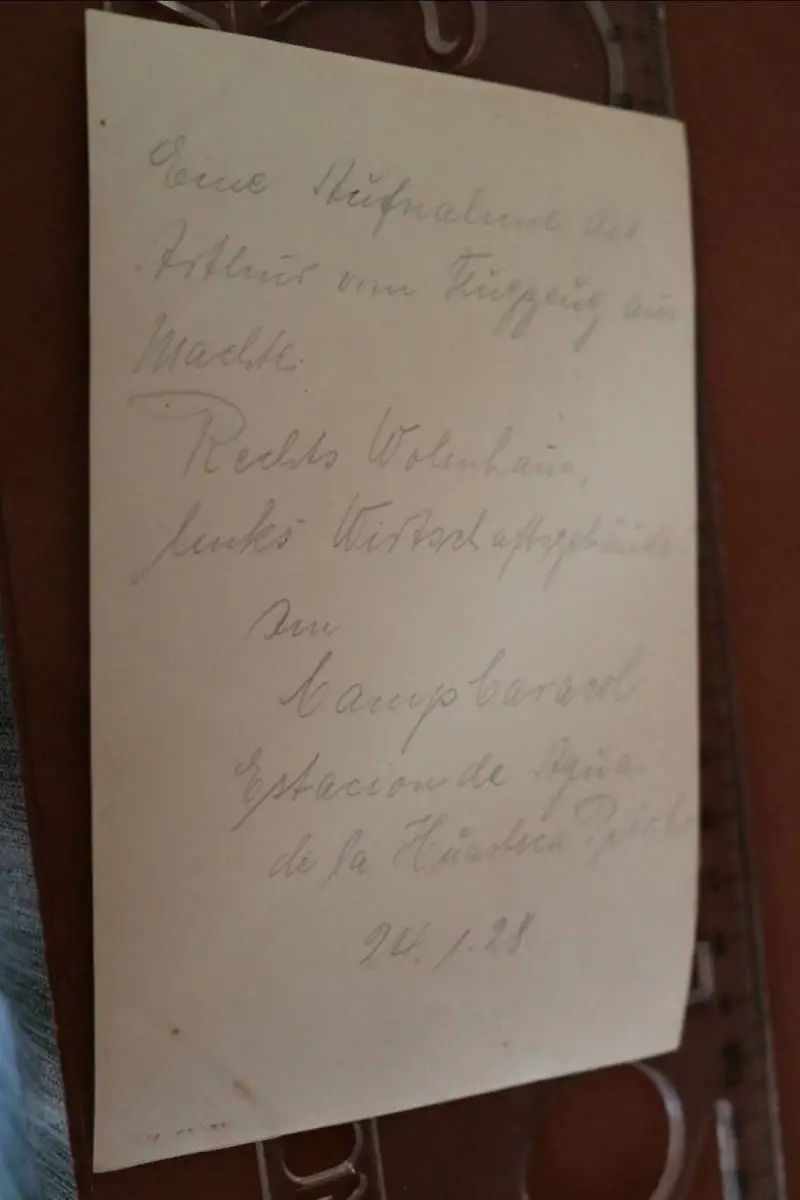 Eine Aufnahme die
Arthur vom Flugzeug aus
Machte.
Rechts Wohnhaus,
links Wirtschaftsgebäude
Camp Caracol
Estacion de Agua
de la Huasteca
24.1.28